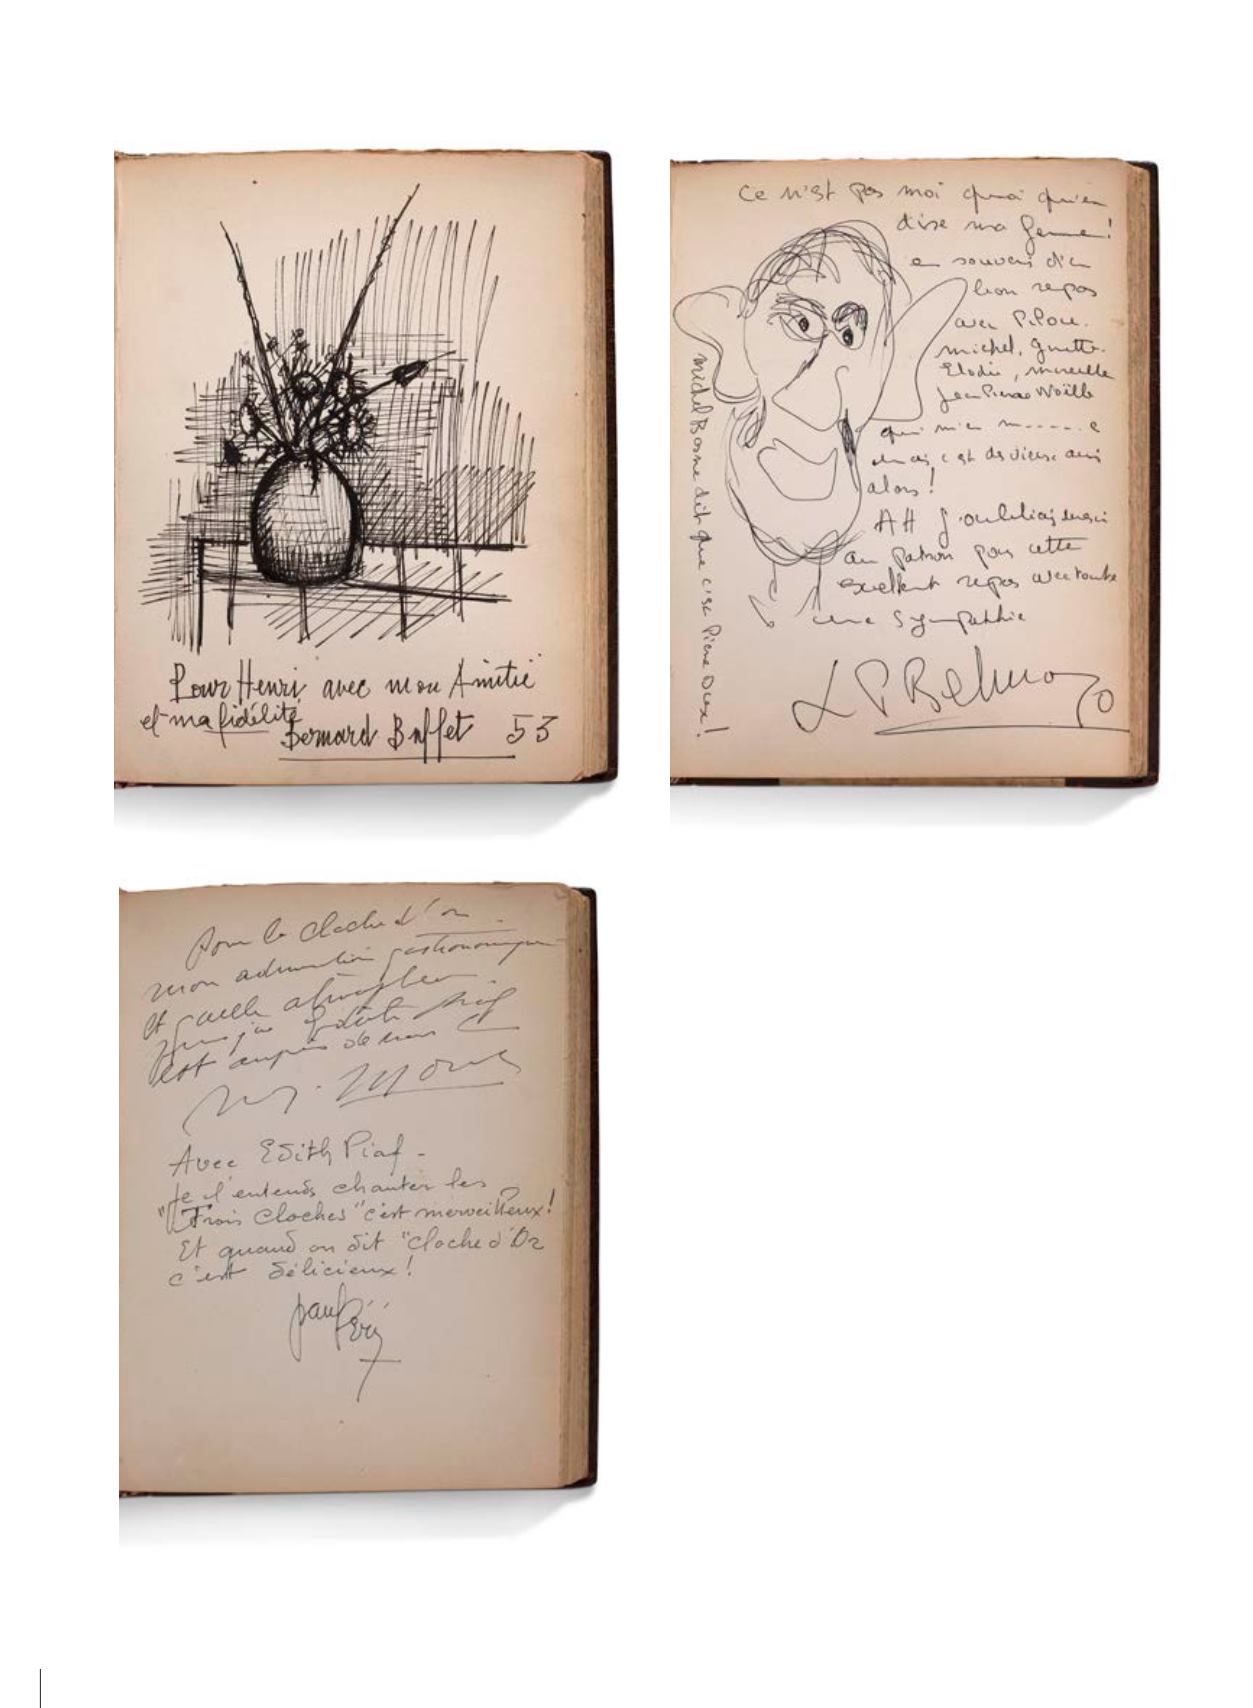 Pour Henri avec mon Amitié
et ma fidélité
Bernard Buffet 53
Ce n'est pas moi quoi qu'en
dise ma femme!
en souvenir d'un
bon repas
avec
michel,
Elodie,
Jean Pierre Noëlle
qui m'en m.....e
mais c'est de vieux amis
alors!
AH j'oubliais merci
au patron pour cette
excellent repas avec toute
ma sympathie
J P Belmondo
Michel Beaune dit que c'est Pierre Dux!
Pour la cloche d'or
mon admiration gastronomique
et quelle atmosphère
Edith Piaf
est auprès de nous
Avec Edith Piaf -
Je l'entends chanter les
"Trois Cloches" c'est merveilleux!
Et quand on dit "cloche d'Or
c'est délicieux!
paul Péri